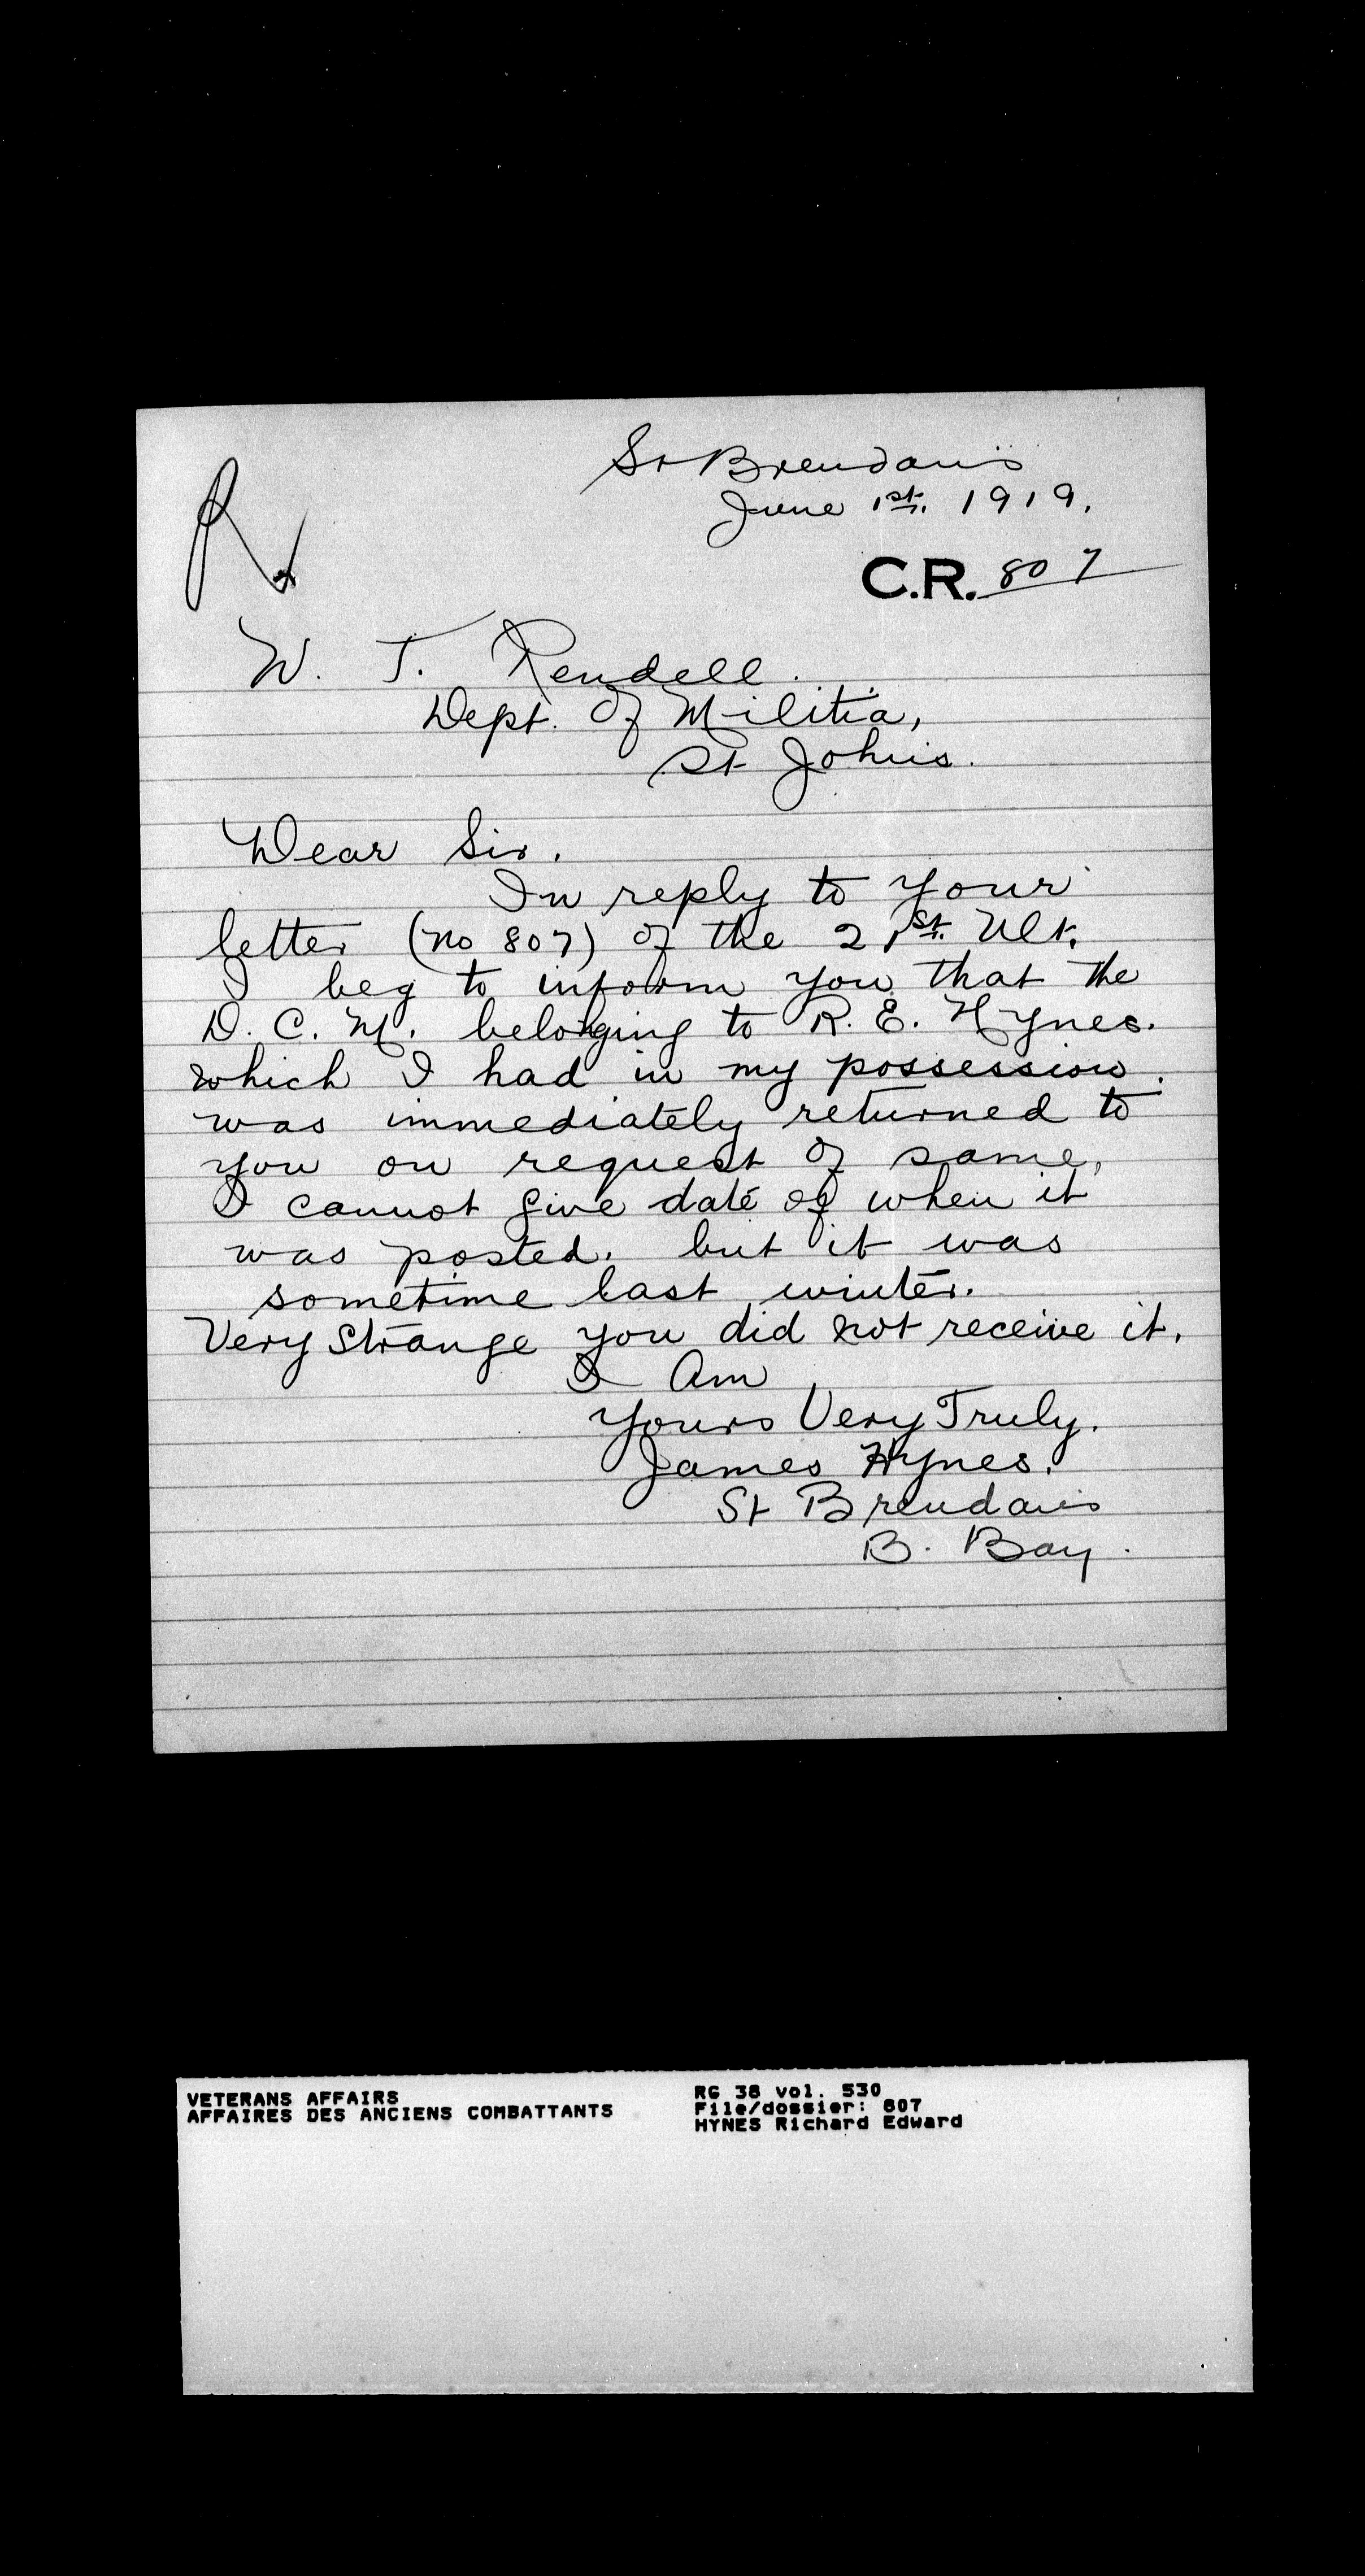 St Brendan's
June 1st. 1919.
C.R. 807
W. T. Rendell.
Dept. of Militia,
St John's.
Dear Sir.
In reply to your
letter (no 807) of the 21st. Ult.
I beg to inform you that the
D. C. M. belonging to R. E. Hynes.
which I had in my possession.
was immediately returned to
you on request of same,
I cannot give date of when it
was posted. but it was
sometime last winter.
Very Strange you did not receive it.
I Am
Yours Very Truly.
James Hynes.
St Brendan's
B. Bay.
VETERANS AFFAIRS
AFFAIRES DES ANCIENS COMBATTANTS
RG 38 vol. 530
File/dossier: 807
HYNES Richard Edward